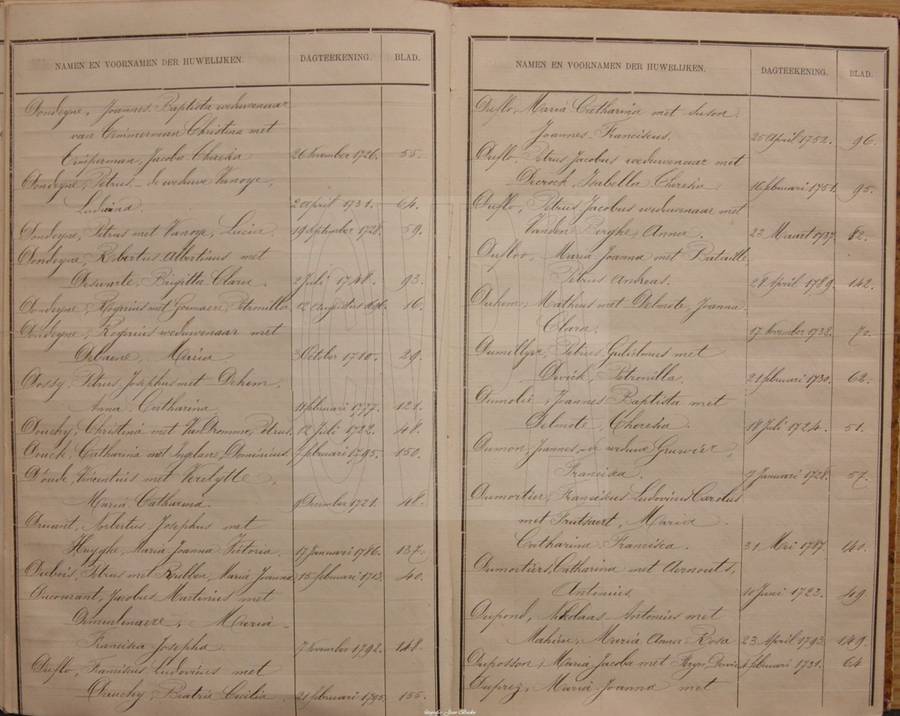 NAMEN EN VOORNAMEN DER HUWELIJKEN. DAGTEEKENING. BLAD.
Dondeyne, Joannes Baptista weduwenaar
van Timmerman Christina met
Timperman, Jacoba Theresia 26 November 1726. 55.
Dondeyne, Petrus - de weduwe Vanoye,
Ludwina. 2 April 1731. 64.
Dondeyne, Petrus met Vanoye, Lucia. 19 September 1728. 59.
Dondeyne, Robertus Albertinus met
Deswarte, Brigitta Clara 2 Juli 1748. 93.
Dondeyne, Rogerius met Goemaere, Petronilla 12 Augustus 16.
Dondeyne, Rogerius weduwenaar met
Debaene, Maria 3 October 1710. 29.
Dossy, Petrus Josephus met Dehem,
Anna Catharina 11 februari 1777. 121.
Douchy, Christina met Van Bromme, Petrus 12 Juli 1722. 48.
Douck, Catharina met Inglare, Dominicus. 7 februari 1795. 150.
D'oude, Vincentius met Verslytte
Maria Catharina 9 December 1721. 48.
Druant, Norbertus Josephus met
Huyghe, Maria Joanna Victoria. 17 Januari 1786. 137.
Dubois, Petrus met Rubben, Maria Joanna 15 februari 1713. 40.
Ducourant, Jacobus Martinius met
Demeulenaere, Maria
Francisca Josepha 7 November 1792. 148.
Duflo, Franciscus Ludovicus met
Douchy, Beatrix Cecilia 21 februari 1795. 155.
NAMEN EN VOORNAMEN DER HUWELIJKEN. DAGTEEKENING. BLAD.
Duflo, Maria Catharina met
Joannes Franciscus. 25 April 1752. 96.
Duflo, Petrus Jacobus weduwenaar met
Decrock, Isabella Theresia 16 februari 1751. 95.
Duflo, Petrus Jacobus weduwenaar met
Vanden Berghe, Anna. 22 Maart 1737. 82.
Dufloo, Maria Joanna met Bataille
Petrus Andreas. 28 April 1789. 142.
Duhem, Mathius met Delmote, Joanna
Clara. 17 November 1733. 70.
Dumellyn, Petrus Gulielmus met
Devick, Petronilla. 21 februari 1730. 62.
Dumolie, Joannes Baptista met
Delmote, Theresia 18 Juli 1724. 51.
Dumon, Joannes - de weduwe Gruwier,
Francisca 7 Januari 1728. 57.
Dumortier, Franciscus Ludovicus Carolus
met Trutsaert, Maria
Catharina Francisca. 31 Mei 1787. 140.
Dumortiers, Catharina met Aernouts,
Antonius. 10 Juni 1723. 49.
Dupond, Nikolaas Antonius met
Mahieu, Maria Anna Rosa 23 April 1793. 149.
Duposson, Maria Jacoba met 4 februari 1731. 64
Duprez, Maria Joanna met